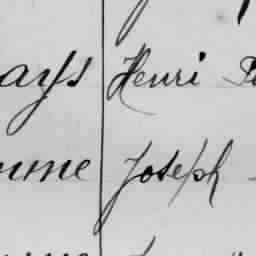 ays Henri
mme Joseph